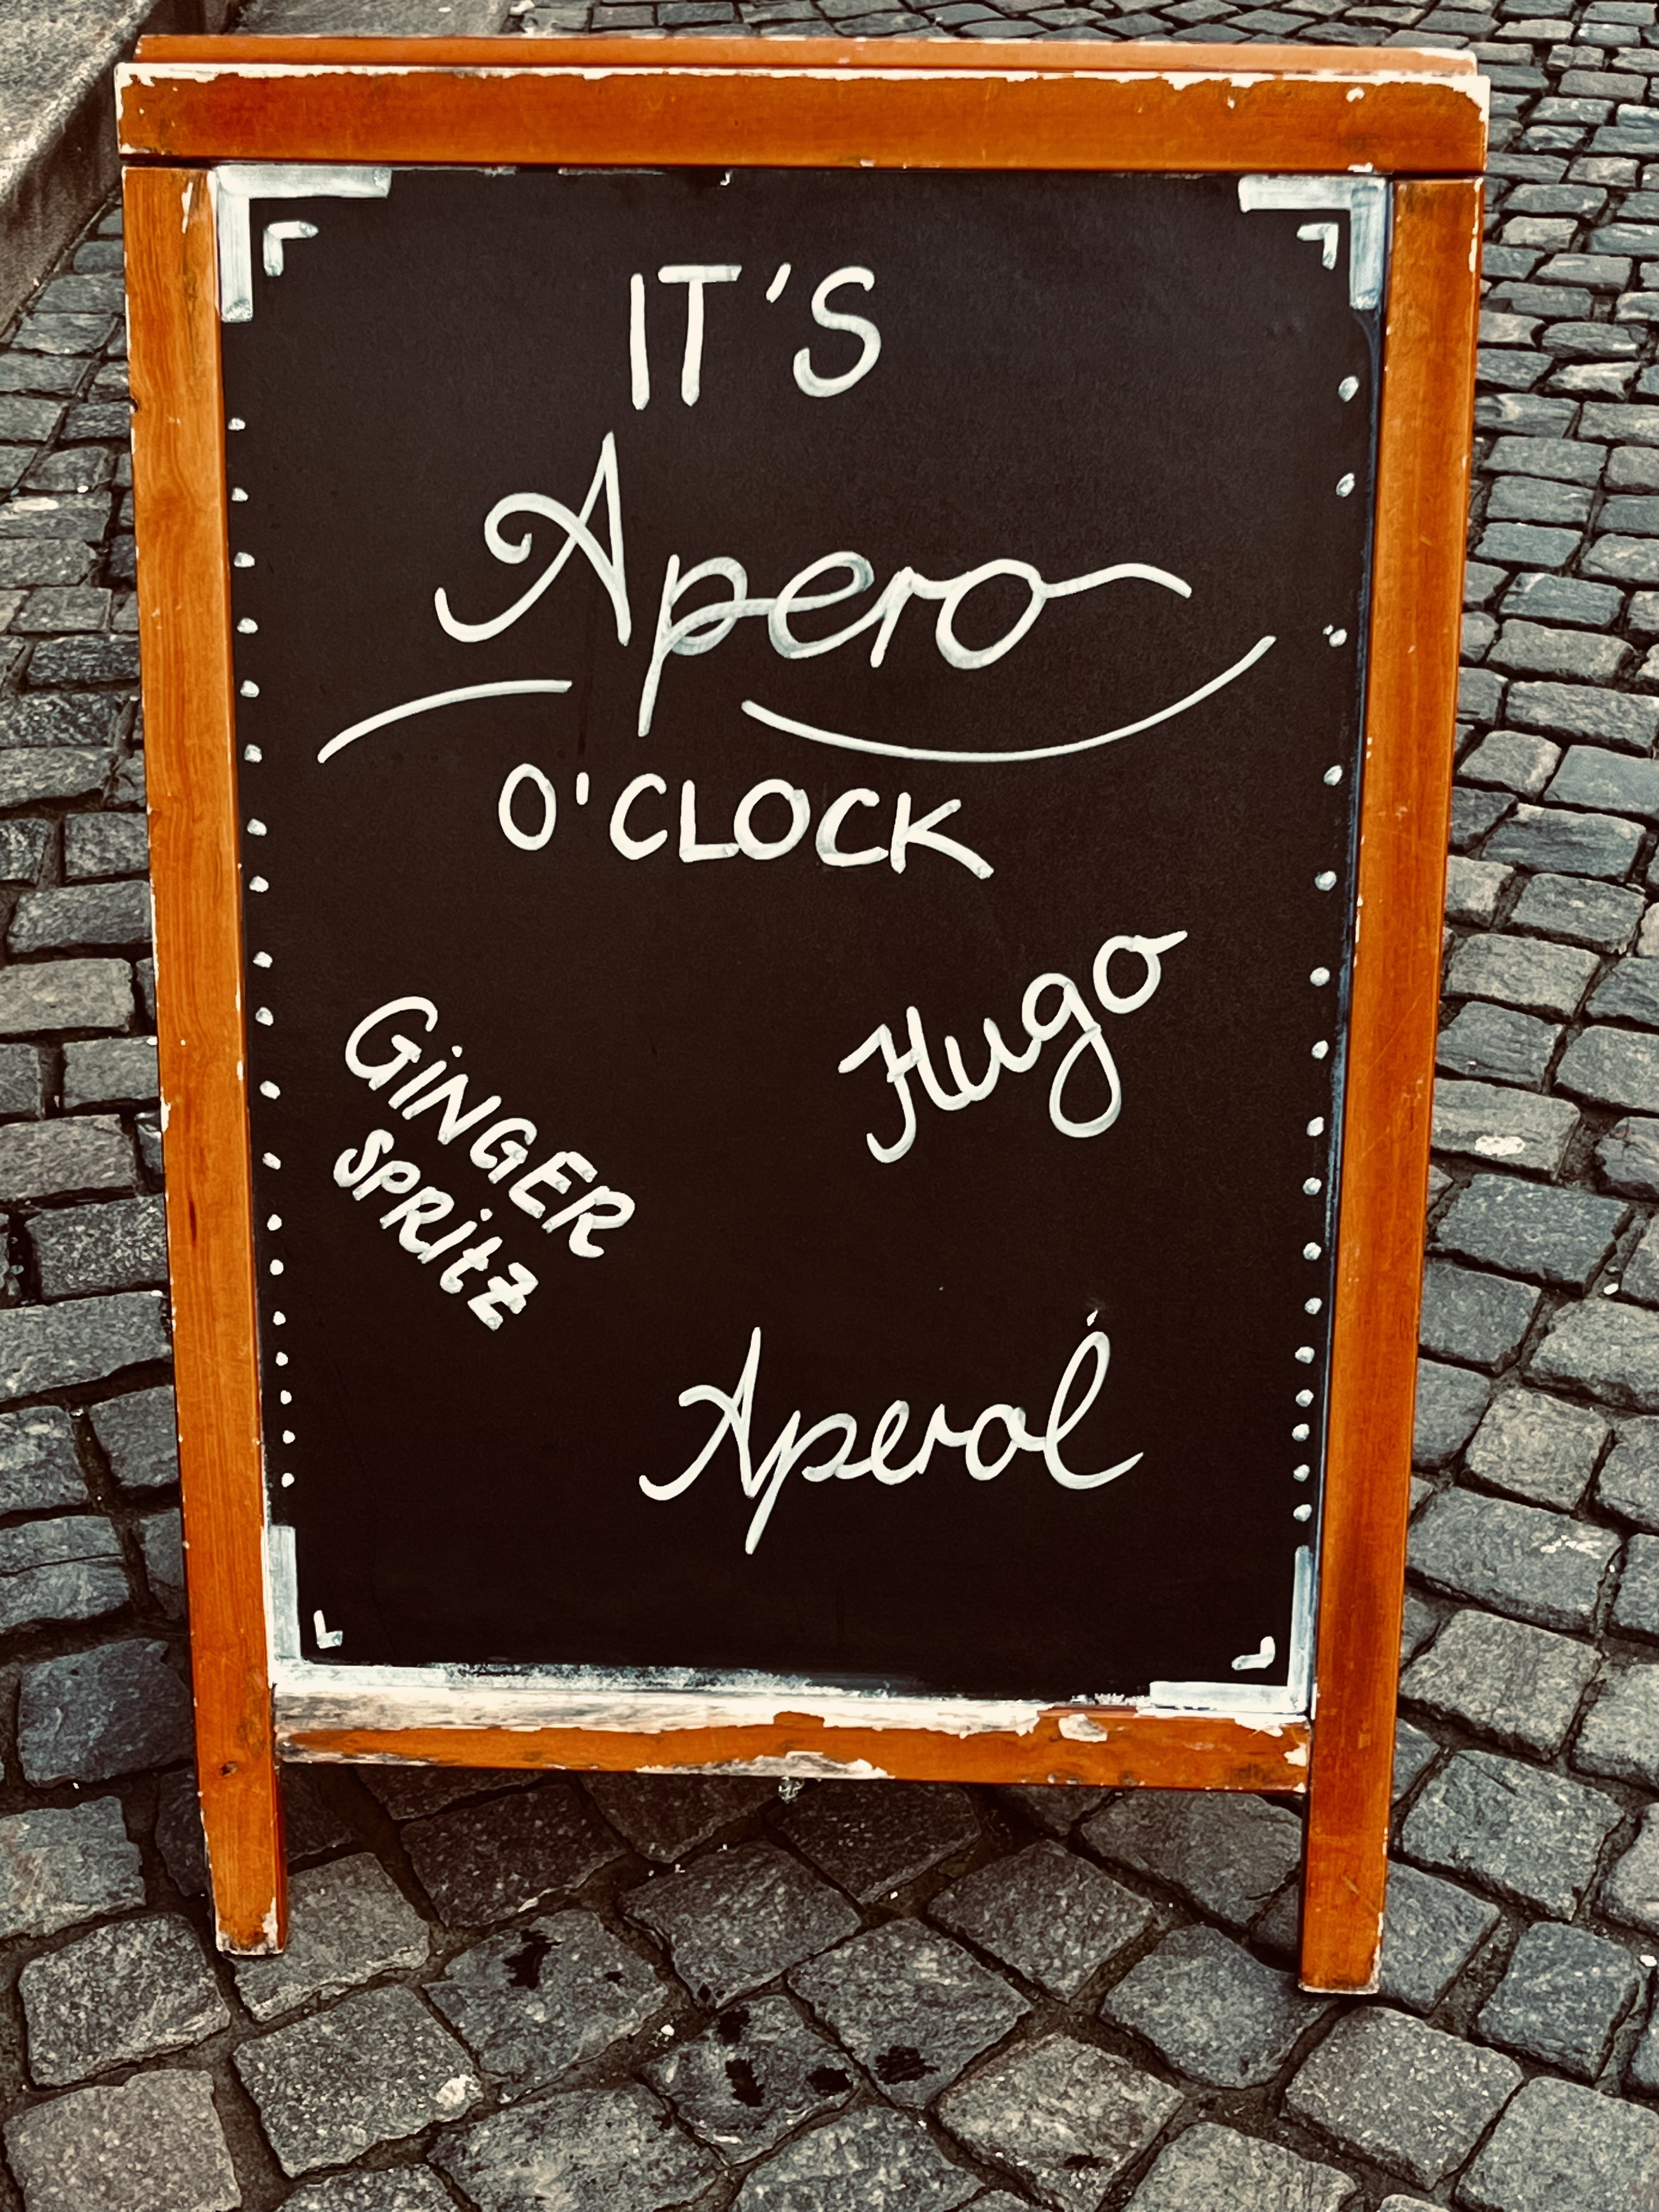 IT'S
Apero
O'CLOCK
Hugo
GiNGER
SPRitZ
Aperol